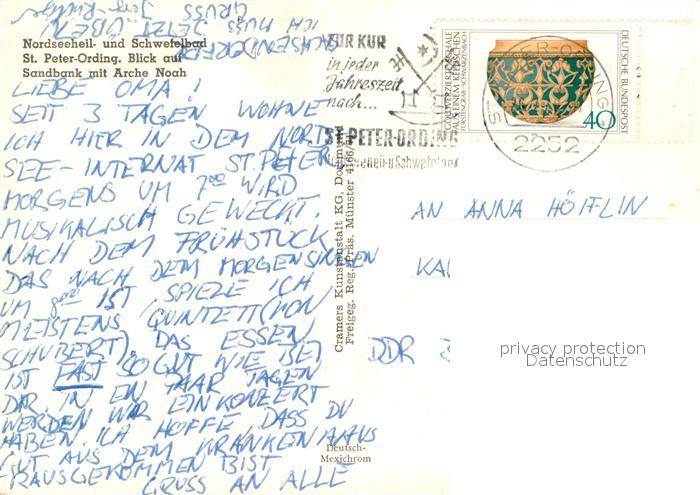 Nordseeheil- und Schwefelbad
St. Peter-Ording. Blick auf
Sandbank mit Arche Noah
LIEBE OMA!
SEIT 3 TAGEN WOHNE
ICH HIER IN DEM NORD
SEE-INTERNAT ST. PETER.
MORGENS UM 7⁰⁰ WIRD
MUSIKALISCH GEWECKT.
NACH DEM FRÜHSTÜCK
DAS NACH DEM MORGENSINGEN
UM 8⁰⁰ IST, SPIELE ICH
MEISTENS QUINTETT (VON
SCHUBERT) DAS ESSEN
IST FAST SO GUT WIE BEI
DIR. IN EIN PAAR TAGEN
WERDEN WIR EIN KONZERT
HABEN. ICH HOFFE DASS DU
GUT AUS DEM KRANKENHAUS
RAUSGEKOMMEN BIST
GRUSS AN ALLE
ICH MUSS JETZT ÜBEN
GRUSS
Cramers Kunstanstalt KG, Dortmund
Freigeg. Reg. Präs. Münster 4166/
Deutsch-
Mexichrom
ZUR KUR
in jeder
Jahreszeit
nach...
ST. PETER-ORDING
Nordseeheil-u.Schwefelbad
GOLDVERZIERTE SCHALE
AUS EINEM KELTISCHEN
FÜRSTENGRAB · SCHWARZENBACH
DEUTSCHE BUNDESPOST
40
ST. PETER-ORDING
2252
AN ANNA HÖFFLIN
KA
DDR
privacy protection
Datenschutz